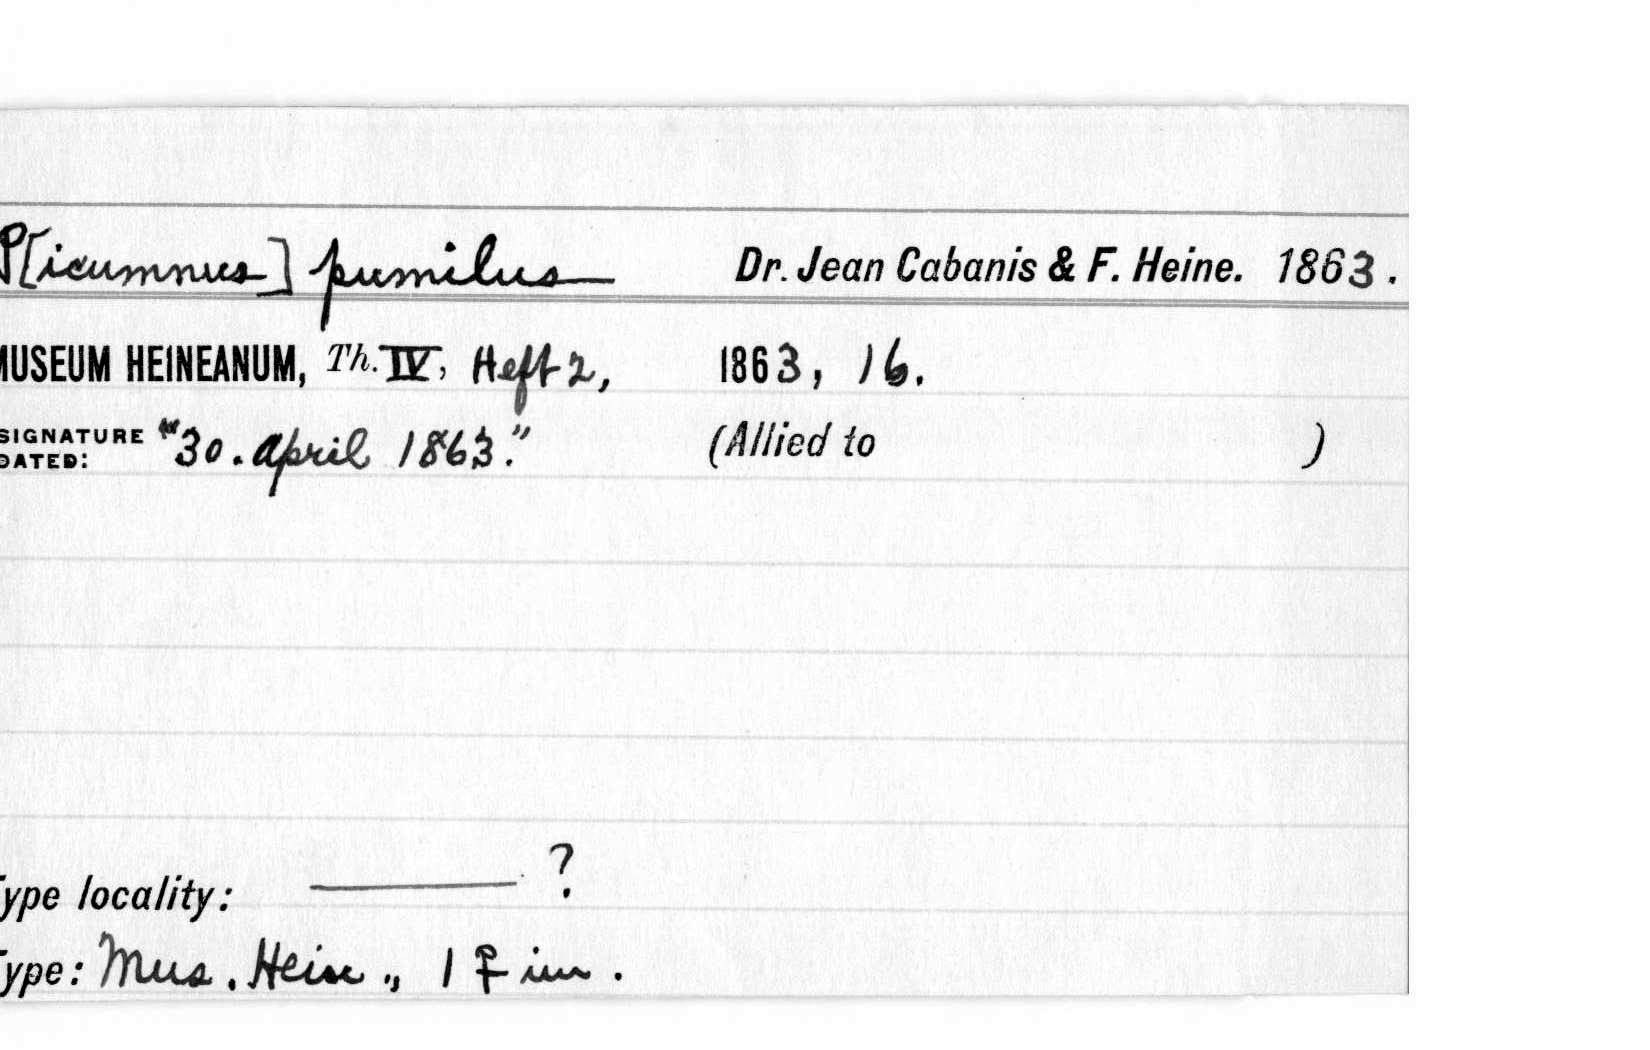 P[icumnus] pumilus Dr. Jean Cabanis & F. Heine. 1863.
MUSEUM HEINEANUM, Th. IV, Heft 2, 1863, 16.
SIGNATURE DATED: "30. April 1863." (Allied to )
Type locality: ——— ?
Type: Mus. Heine., 1 ♀ im.